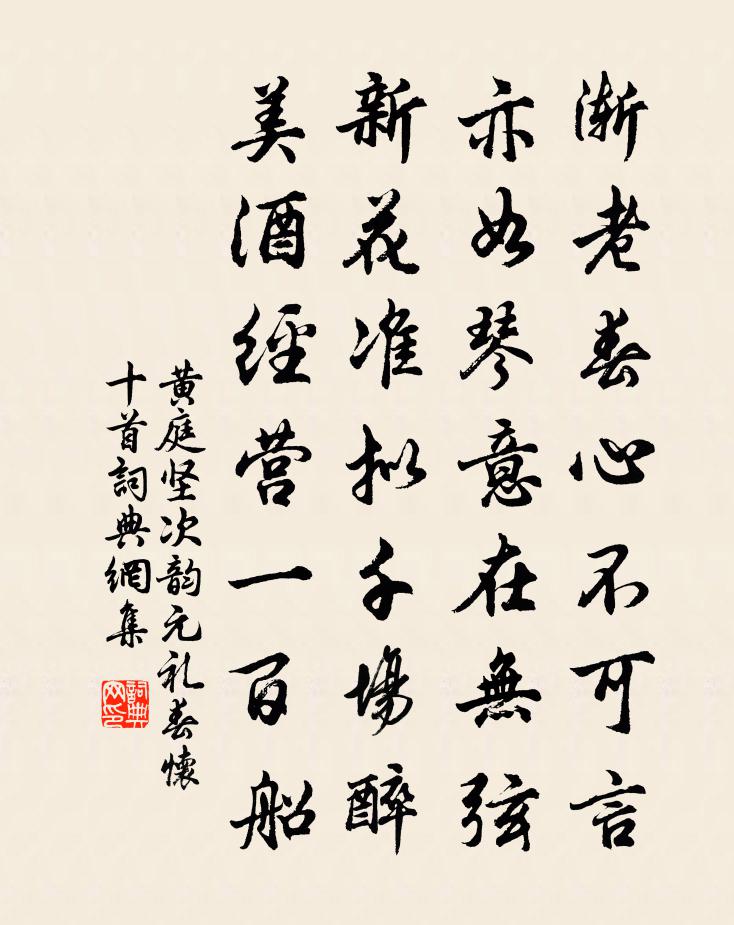 渐老春心不可言
亦如琴意在無弦
新花准拟千場醉
美酒經营一百船
黄庭坚次韵元礼春懷
十首詞典網集
詞典网印